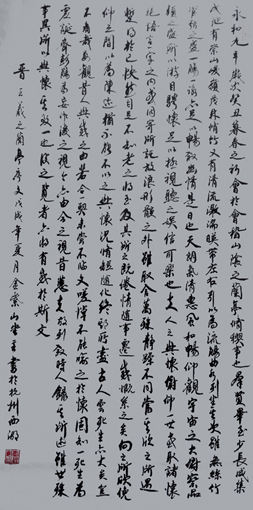 永和九年歲在癸丑暮春之初會於會稽山陰之蘭亭脩禊事也羣賢畢至少長咸集
此地有崇山峻領茂林脩竹又有清流激湍暎帶左右引以為流觴曲水列坐其次雖無絲竹
管弦之盛一觴一詠亦足以暢敘幽情是日也天朗氣清惠風和暢仰觀宇宙之大俯察品
類之盛所以遊目騁懷足以極視聽之娛信可樂也夫人之相與俯仰一世或取諸懷
抱悟言一室之內或因寄所託放浪形骸之外雖取舍萬殊靜躁不同當其欣於所遇
暫得於己快然自足不知老之將至及其所之既倦情隨事遷感慨係之矣向之所欣俛
仰之間以為陳迹猶不能不以之興懷況脩短隨化終期於盡古人云死生亦大矣豈
不痛哉每覽昔人興感之由若合一契未嘗不臨文嗟悼不能喻之於懷固知一死生為
虛誕齊彭殤為妄作後之視今亦由今之視昔悲夫故列敘時人錄其所述雖世殊
事異所以興懷其致一也後之覽者亦將有感於斯文
晉王羲之蘭亭序文戊戌年夏月金山堂主書於杭州西湖